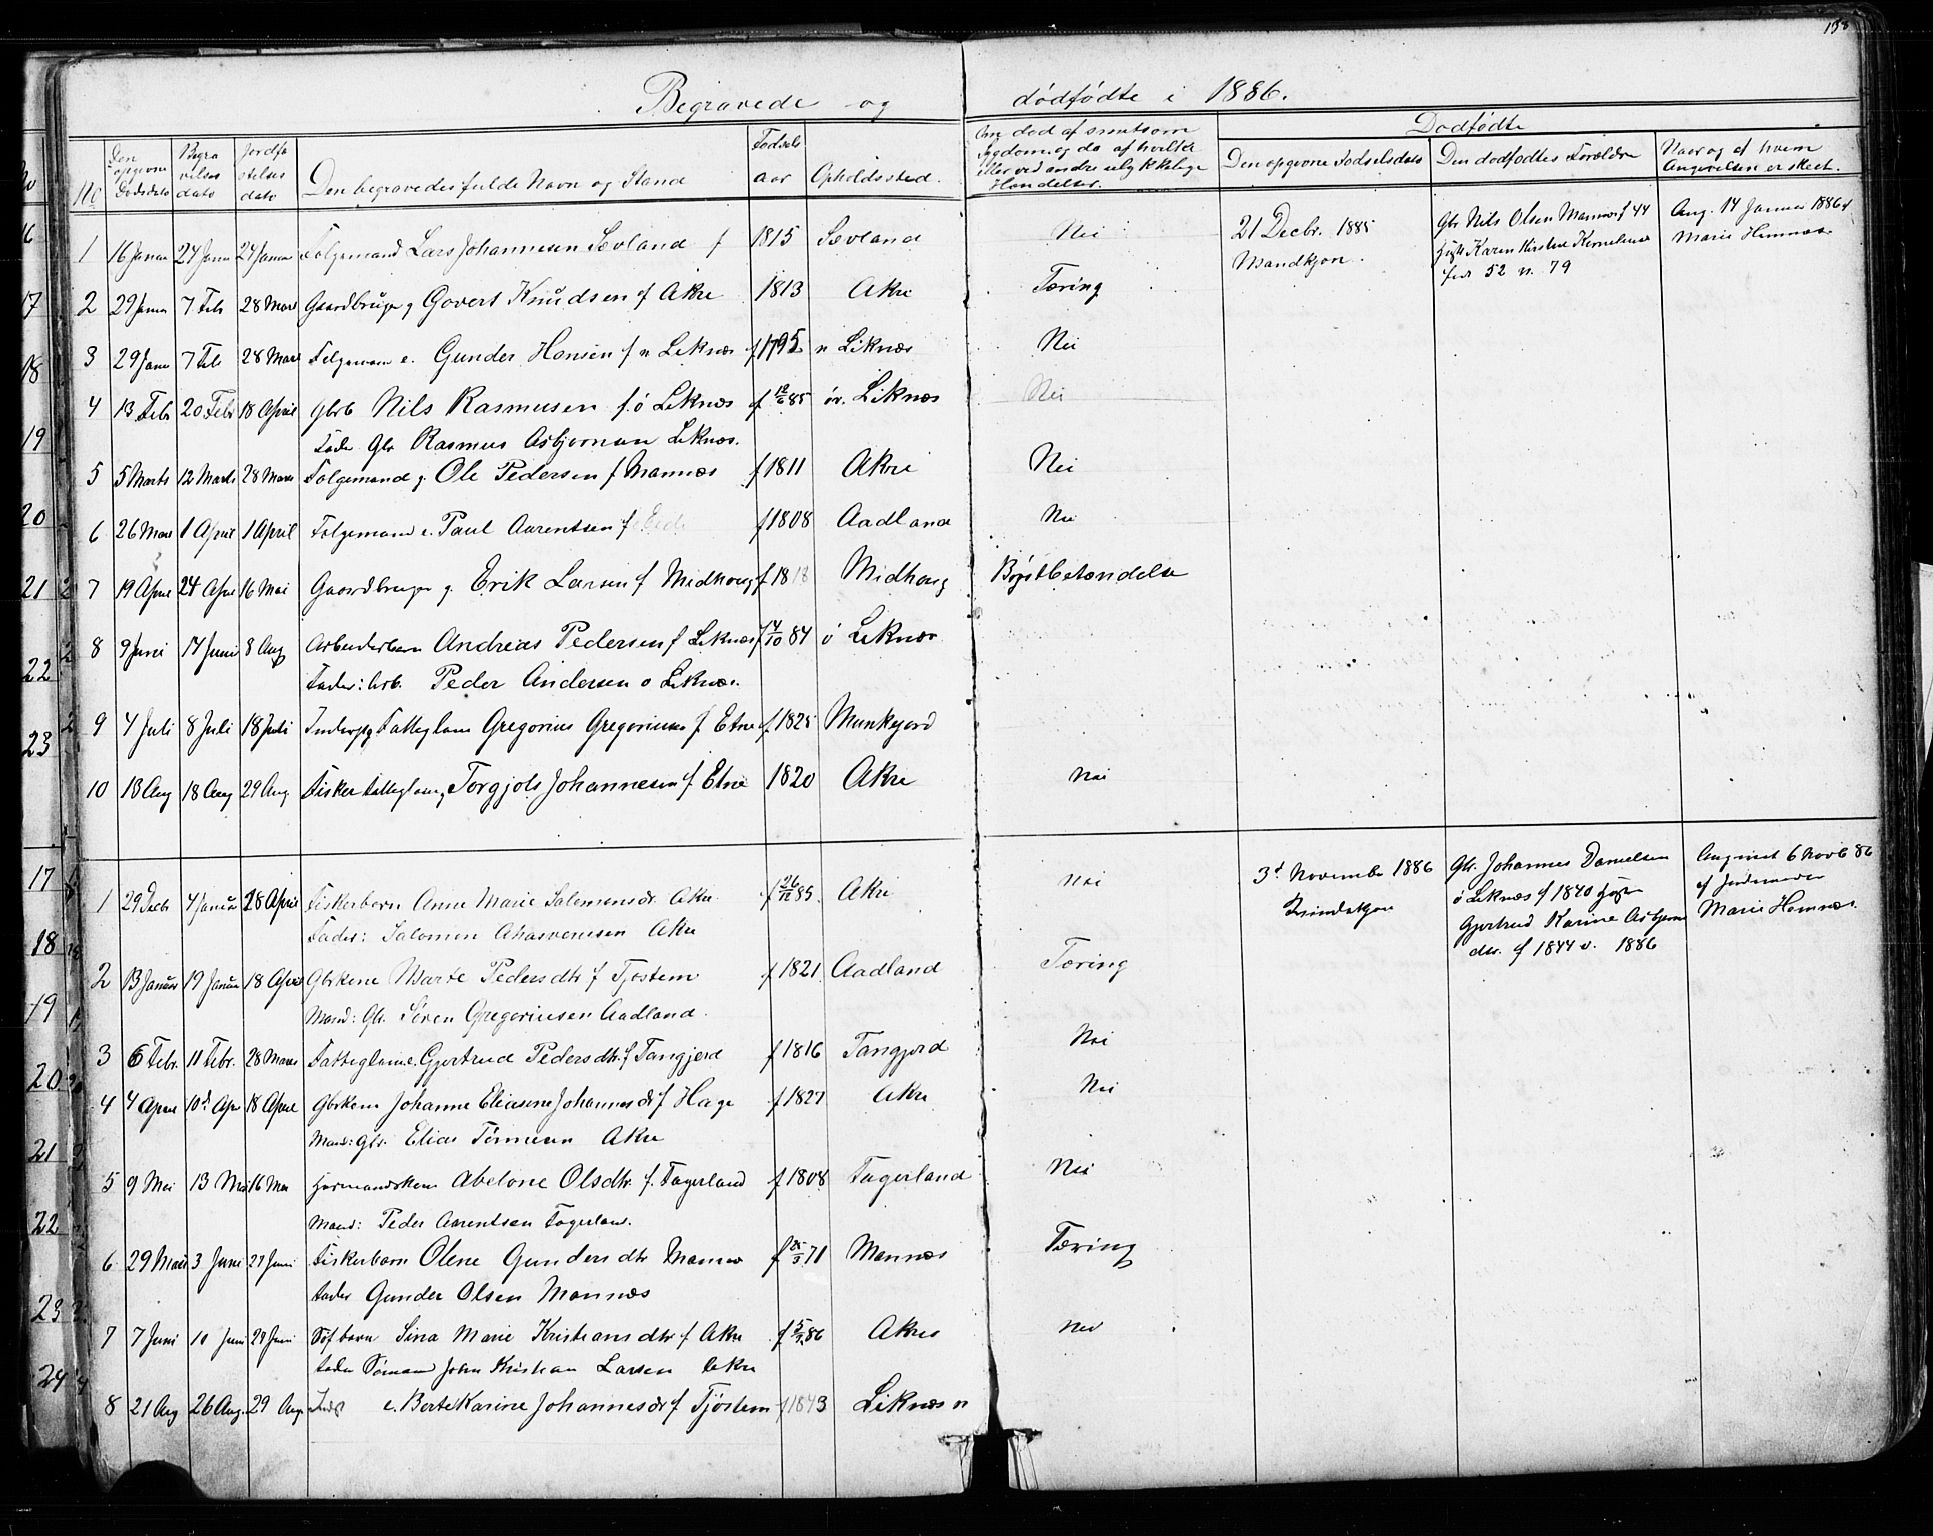 138
Begravede og dødfødte i 1886.
No
Den opgivne Dødsdato
Begravelsesdato
Jordfæstelses dato
Den begravedes fulde Navn og Stand
Fødselsaar
Opholdssted.
Om død af smitsom Sygdom og da af hvilke eller ved andre ulykkelige Hændelser.
Dødfødte
Den opgivne Fødselsdato
Den dødfødtes Forældre
Naar og af hvem Angivelsen er skeet.
1 16 Januar 24 Janu 24 Januar Følgemand Lars Johannesen Sævland f 1815 Sævland Nei
21 Decbr. 1885 Mandkjøn.
Gbr Nils Olsen Mannæs f 44
Karen Kirstine Kornelius
52 79
Ang. 14 Januar 1886 af
Marie Hemnæs
2 29 Janu 7 Feb 28 Mars Gaardbruger g Govert Knudsen f Akre 1813 Akre Tæring
3 29 Janu 7 Feb 28 Mars Følgemand e. Gunder Hansen f n Liknæs f 1795 n Liknæs Nei
4 13 Feb 20 Feb 18 April Gbrb Nils Rasmusen f. ø Liknæs f 12/6 85 øv. Liknæs Nei
Fader Gbr Rasmus Asbjørnsen Liknæs.
5 5 Marts 12 Marts 28 Mars Følgemand g. Ole Pedersen f Mannæs f 1811 Akre Nei
6 26 Mars 1 April 1 April Følgemand e. Paul Aarentsen f f 1808 Aadland Nei
7 19 April 24 April 16 Mai Gaardbruger g. Erik Larsen f Midhaug f 1818 Midhaug Brystbetændelse
8 9 Juni 14 Juni 8 Aug Arbeiderbarn Andreas Pedersen f Liknæs f 14/10 84 ø Liknæs
Fader: Arb. Peder Andersen ø Liknæs.
9 4 Juli 8 Juli 18 Juli Inderst g Fattiglem Gregorius Gregoriusen f Etne f. 1825 Munkejord
10 13 Aug 18 Aug 29 Aug Fisker Fattiglem g Torgjols Johannesen f Etne 1820 Akre Nei
1 29 Decb 4 Januar 28 April Fiskerbarn Anne Marie Salomonsdr. Akre f 26/12 85. Akre Nei
Fader: Salomon Ahasverusen Akre
3d November 1886
Kvindekjøn
Gbr. Johannes Danielsen
ø Liknæs f 1840
Gjertrud Karine Asbjørns
dtr. f 1844 v. 1886
Angivet 6 Novb 86
af Jordemoder
Marie Hemnæs.
2 13 Januar 19 Januar 18 April Gbrkone Marte Pedersdtr f Tjøstem f 1821 Aadland Tæring
Mand: Gbr. Søren Gregoriusen Aadland.
3 6 Febr. 11 Febr. 28 Mars Fattiglem e. Gjertrud Pedersdtr. f Tangjerd f 1816 Tangjerd Nei
4 4 April 10d Apr 18 April Gbrkone Johanne Eliasine Johannesdr f Hage f 1827 Akre Nei
Mand: Gbr. Elias Tørresen Akre
5 9 Mai 13 Mai 16 Mai Huusmandskone Abelone Olsdtr. f. Fagerland f 1808 Fagerland Nei
Mand: Peder Aarentsen Fagerland.
6 29 Mai 3 Juni 27 Juni Fiskerbarn Olene Gundersdtr Mannæs f 25/3 71 Mannæs Tæring
Fader Gunder Olsen Mannæs
7 7 Juni 10 Juni 29 Juni Søf barn Sina Marie Kristiansdtr f Akre f 5/5 86 Akre Nei
Fader Sømand John Kristian Larsen Akre
8 21 Aug 26 Aug. 29 Aug e. Berte Karine Johannesdr f Tjøstem f 1843 Liknæs n
16
17
18
19
20
21
22
23
17
18
19
20
21
22
23
24